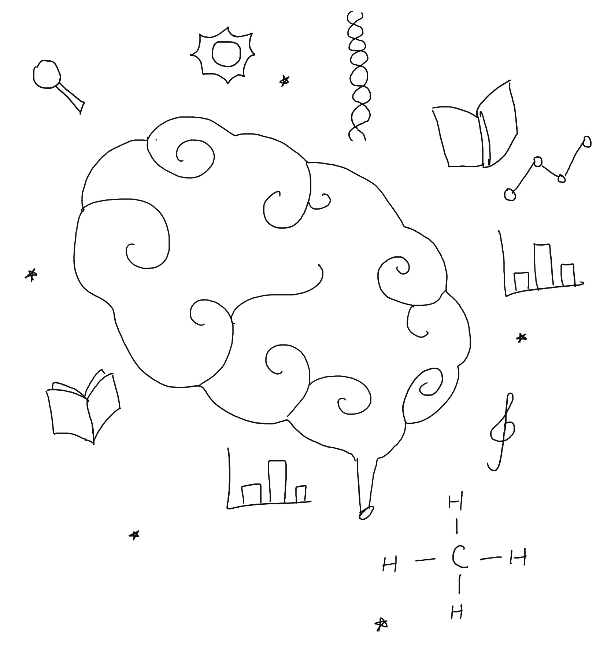 H
H — C — H
H